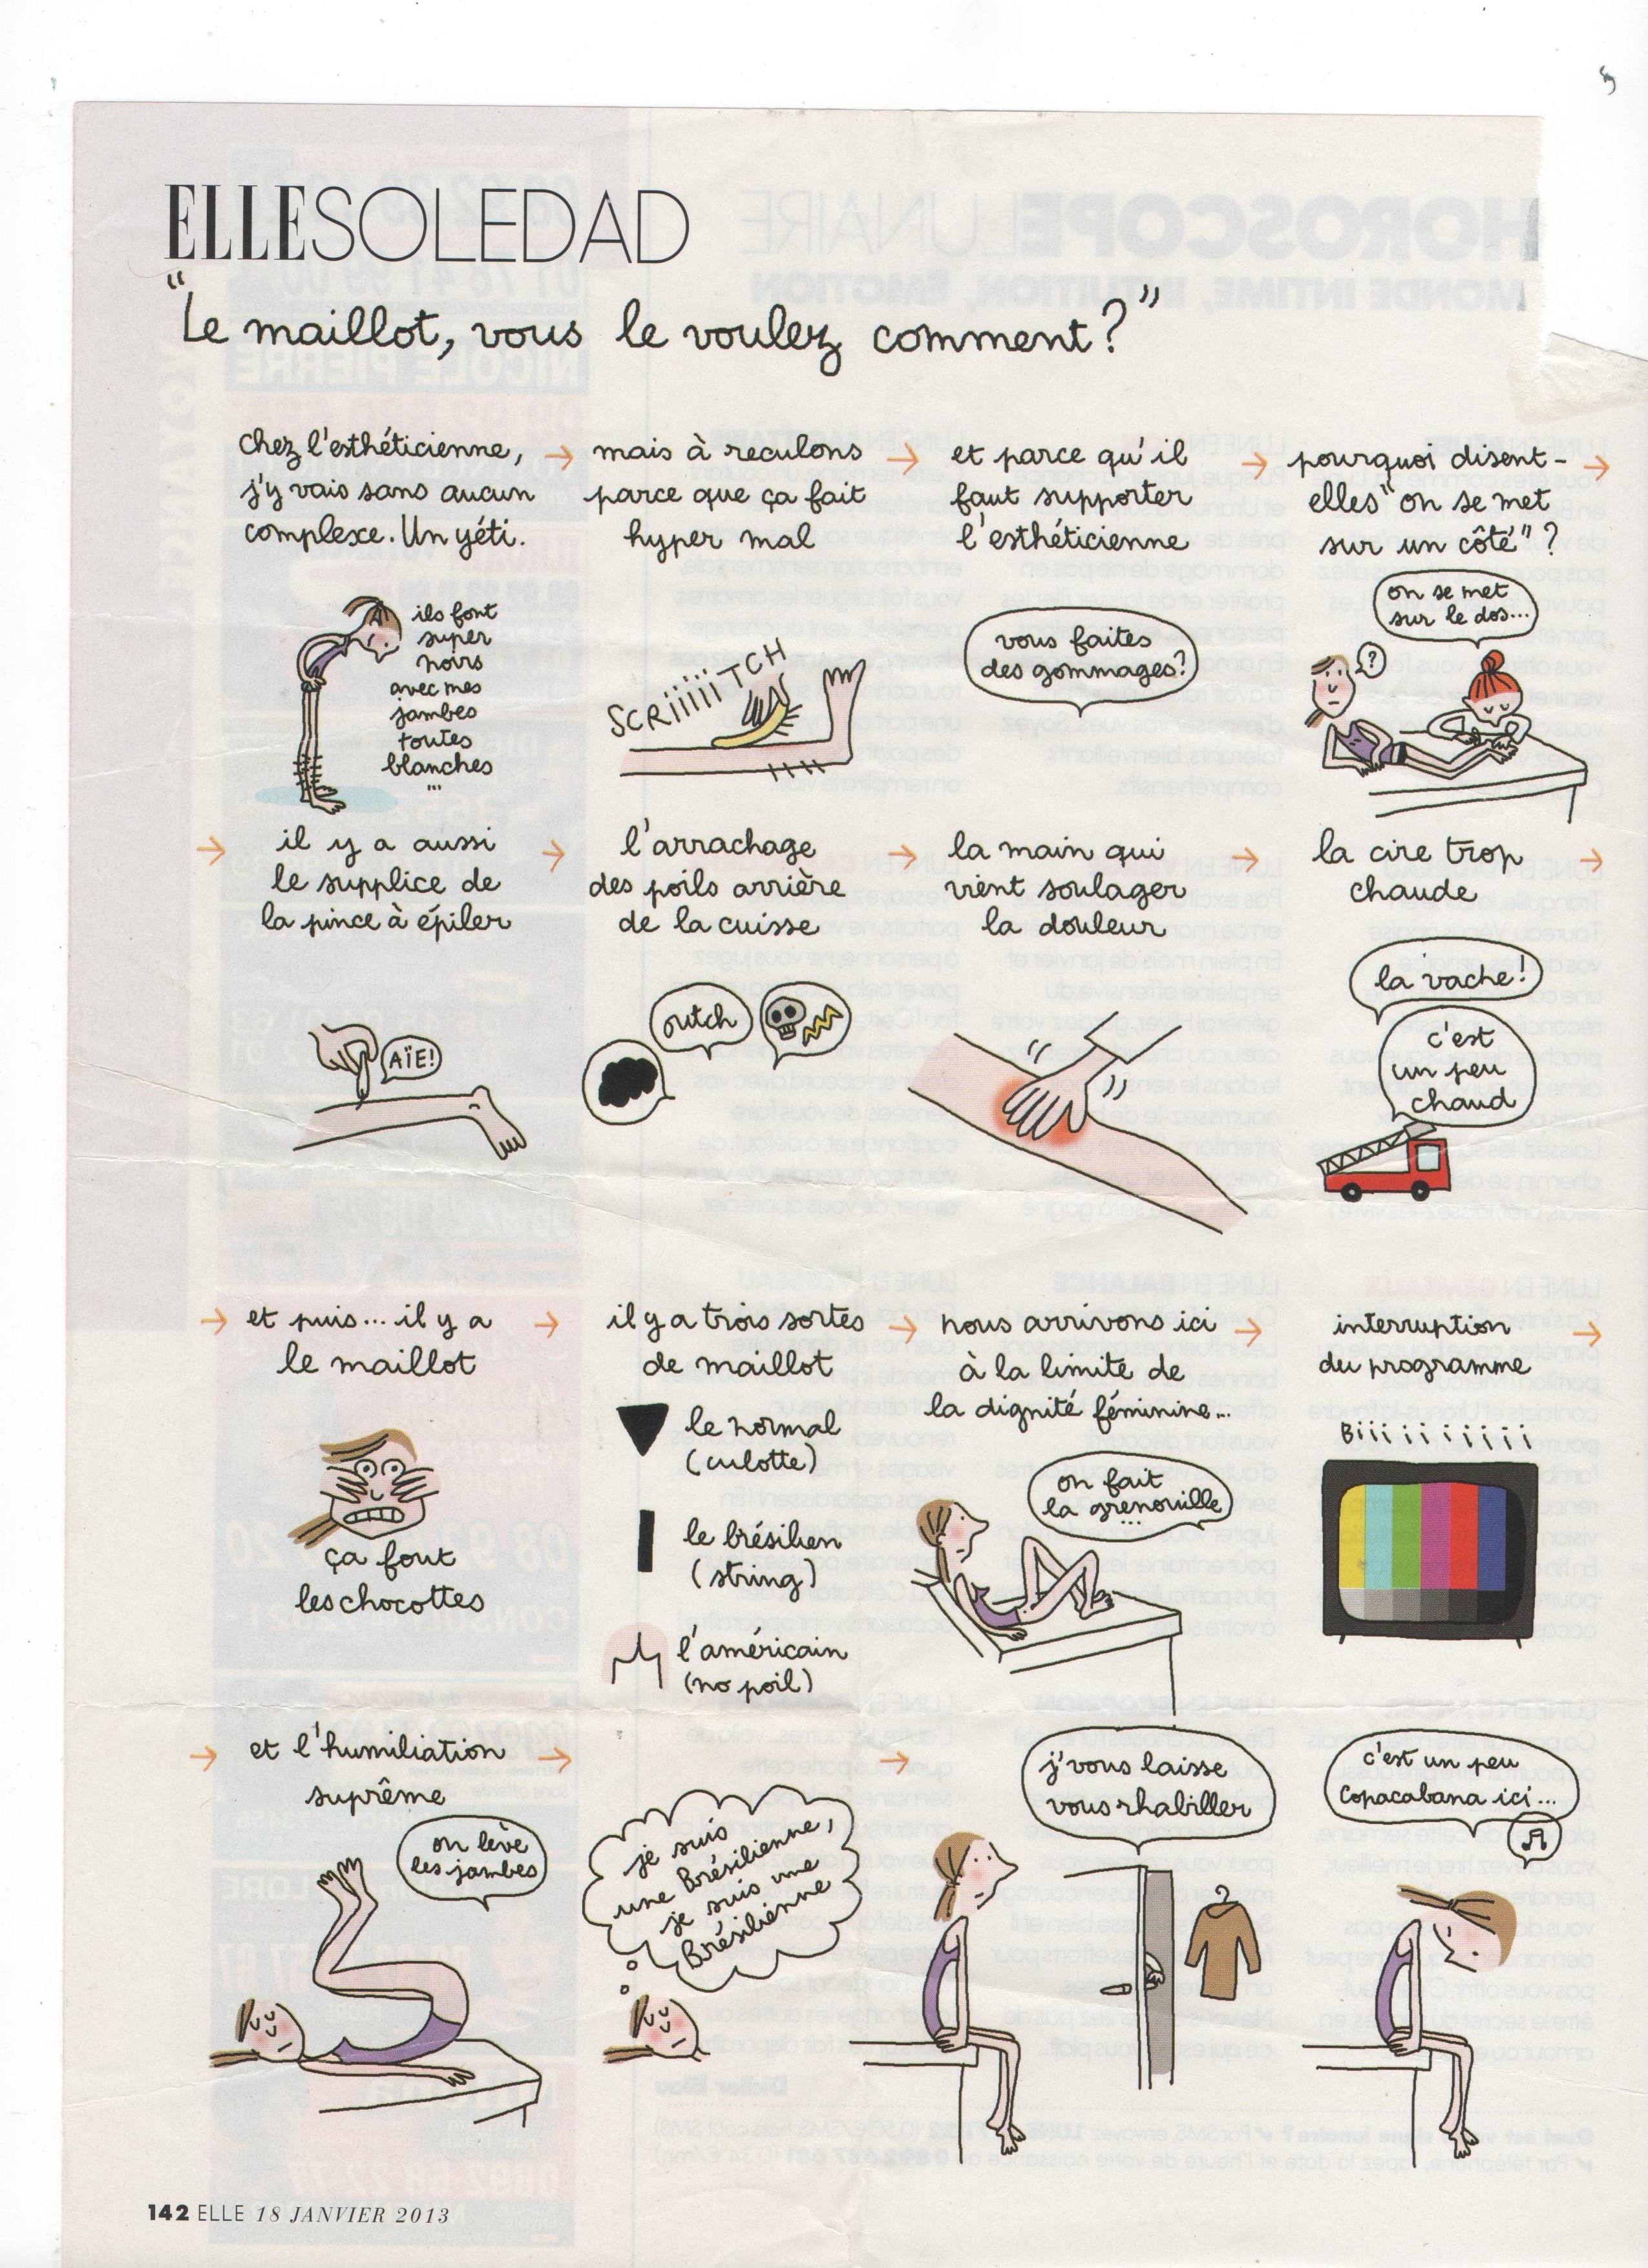 ELLESOLEDAD
"Le maillot, vous le voulez comment?"
chez l'esthéticienne,
j'y vais sans aucun
complexe. Un yéti.
ils font
super
noirs
avec mes
jambes
toutes
blanches
...
→ mais à reculons
parce que ça fait
hyper mal
SCRiiiiiiTCH
→ et parce qu'il
faut supporter
l'esthéticienne
vous faites
des gommages?
→ pourquoi disent-
elles "on se met
sur un côté"?
on se met
sur le dos...
?
→ il y a aussi
le supplice de
la pince à épiler
AÏE!
→ l'arrachage
des poils arrière
de la cuisse
outch
→ la main qui
vient soulager
la douleur
→ la cire trop
chaude
la vache!
c'est
un peu
chaud
→ et puis... il y a
le maillot
ça fout
les chocottes
→ il y a trois sortes
de maillot
le normal
(culotte)
le brésilien
(string)
l'américain
(no poil)
→ nous arrivons ici
à la limite de
la dignité féminine...
on fait
la grenouille
...
→ interruption
du programme
Biiiiiiiiii
→ et l'humiliation
suprême
on lève
les jambes
→ je suis
une Brésilienne,
je suis une
Brésilienne
→ j'vous laisse
vous rhabiller
c'est un peu
Copacabana ici...
142 ELLE 18 JANVIER 2013